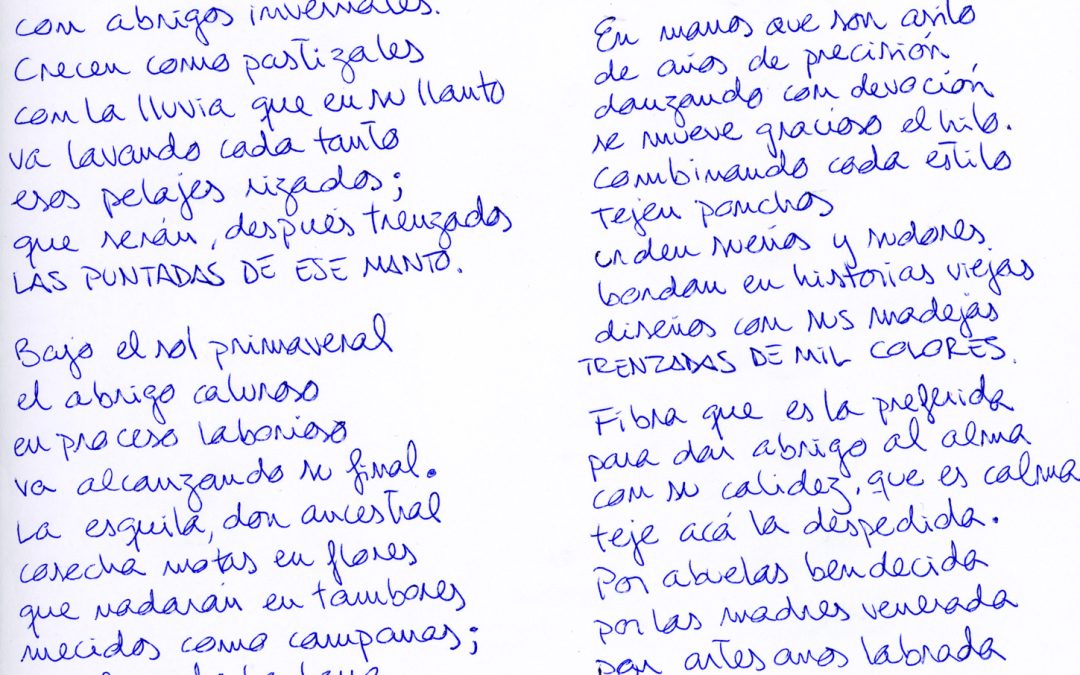 con abrigos invernales.
Crecen como pastizales
con la lluvia que en su llanto
va lavando cada tanto
esos pelajes rizados;
que serán, después trenzados
LAS PUNTADAS DE ESE MANTO.
Bajo el sol primaveral
el abrigo caluroso
en proceso laborioso
va alcanzando su final.
La esquila, don ancestral
cosecha motas en flores
que nadarán en tambores
mecidos como campanas;
En manos que son asilo
de años de precisión,
danzando con devoción
se mueve gracioso el hilo.
Combinando cada estilo
tejen ponchos
urden sueños y sudores
bordan en historias viejas
diseños con sus madejas
TRENZADAS DE MIL COLORES.
Fibra que es la preferida
para dar abrigo al alma
con su calidez, que es calma
teje acá la despedida.
Por abuelas bendecida
por las madres venerada
por artesanos labrada